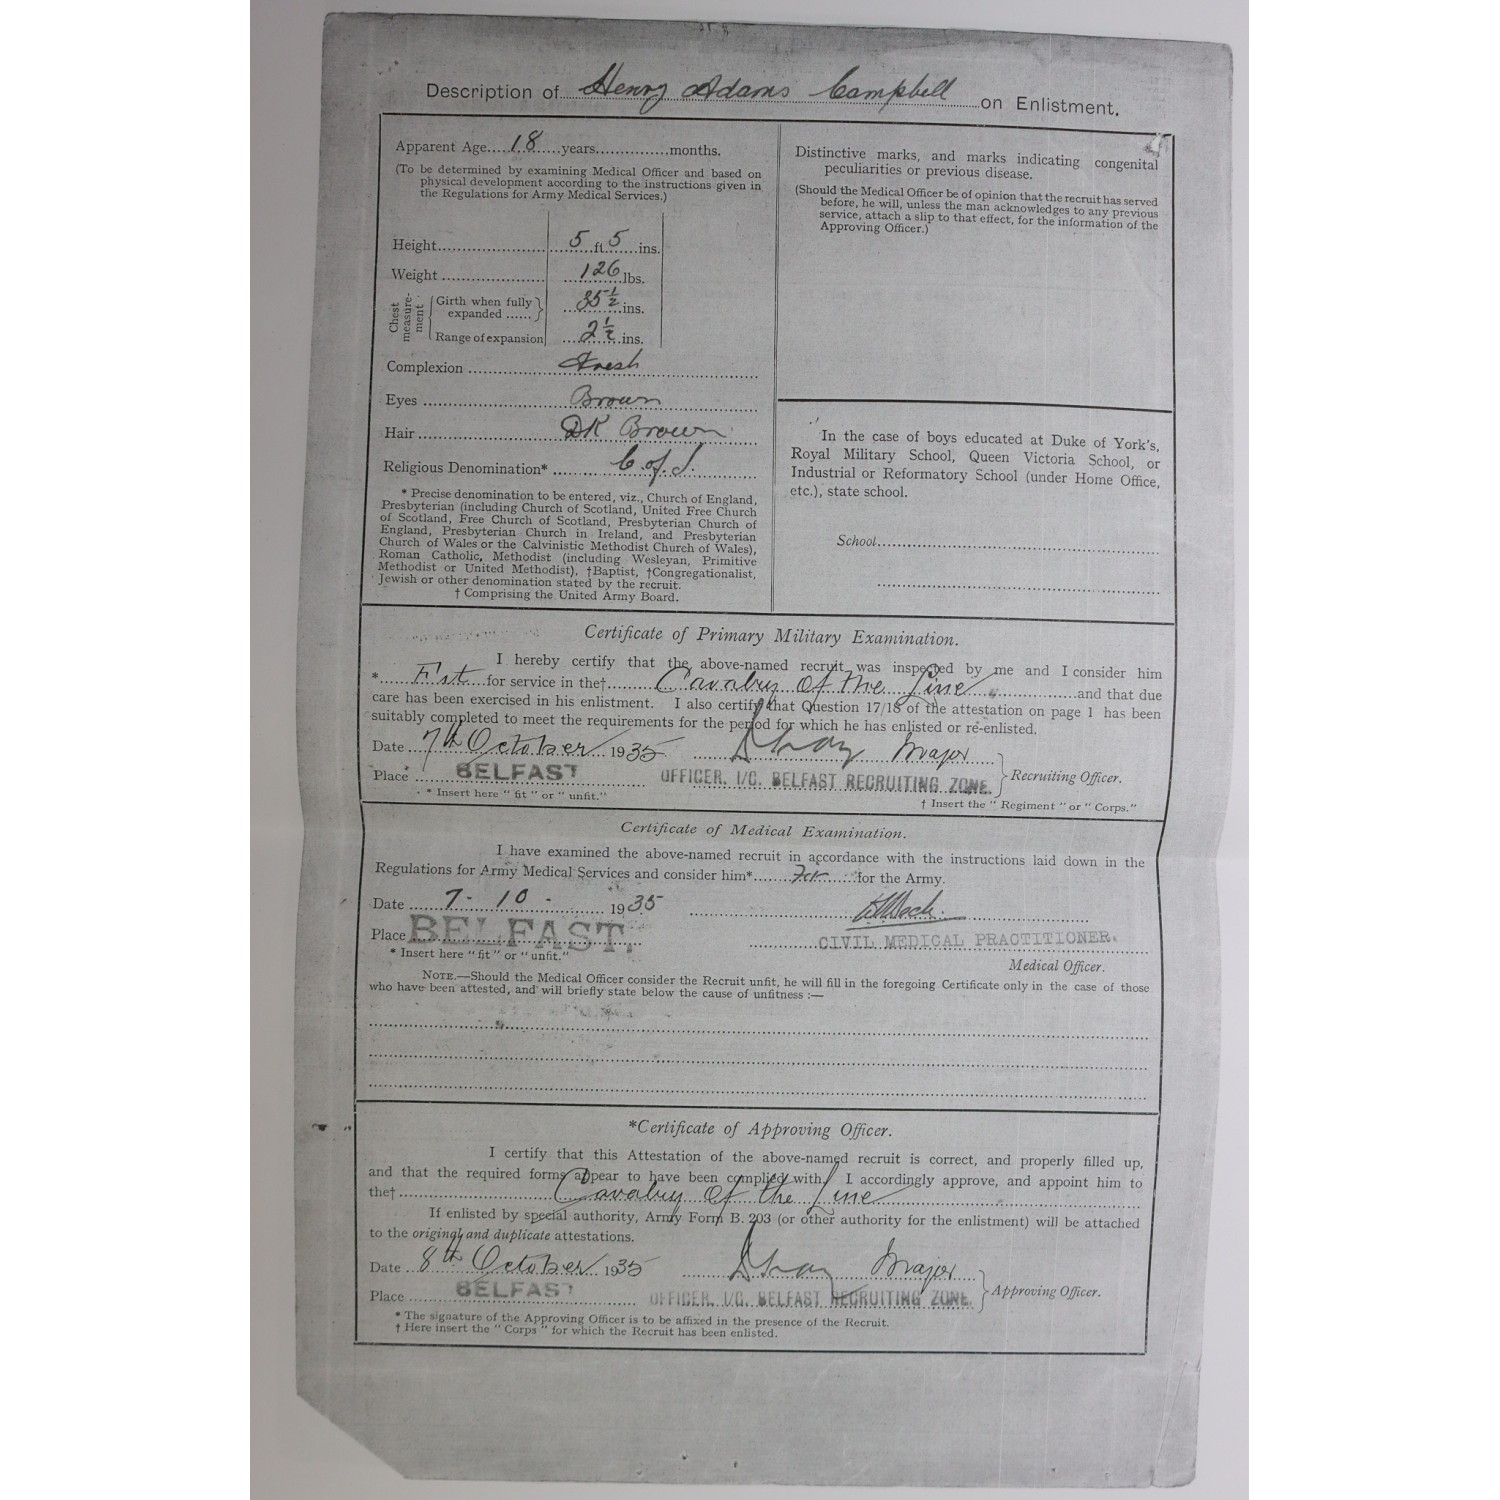 Description of Henry Adams Campbell on Enlistment.
Apparent Age 18 years months.
(To be determined by examining Medical Officer and based on
physical development according to the instructions given in
the Regulations for Army Medical Services.)
Height 5 ft. 5 ins.
Weight 126 lbs.
Chest measure-ment
Girth when fully expanded 35 1/2 ins.
Range of expansion 2 1/2 ins.
Complexion Fresh
Eyes Brown
Hair DK Brown
Religious Denomination* C of I.
* Precise denomination to be entered, viz., Church of England,
Presbyterian (including Church of Scotland, United Free Church
of Scotland, Free Church of Scotland, Presbyterian Church of
England, Presbyterian Church in Ireland, and Presbyterian
Church of Wales or the Calvinistic Methodist Church of Wales),
Roman Catholic, Methodist (including Wesleyan, Primitive
Methodist or United Methodist), †Baptist, †Congregationalist,
Jewish or other denomination stated by the recruit.
† Comprising the United Army Board.
Distinctive marks, and marks indicating congenital
peculiarities or previous disease.
(Should the Medical Officer be of opinion that the recruit has served
before, he will, unless the man acknowledges to any previous
service, attach a slip to that effect, for the information of the
Approving Officer.)
In the case of boys educated at Duke of York's,
Royal Military School, Queen Victoria School, or
Industrial or Reformatory School (under Home Office,
etc.), state school.
School
Certificate of Primary Military Examination.
I hereby certify that the above-named recruit was inspected by me and I consider him
* Fit for service in the† Cavalry Of the Line and that due
care has been exercised in his enlistment. I also certify that Question 17/18 of the attestation on page 1 has been
suitably completed to meet the requirements for the period for which he has enlisted or re-enlisted.
Date 7th October 1935 Major
Place BELFAST OFFICER. I/C. BELFAST RECRUITING ZONE. Recruiting Officer.
* Insert here "fit" or "unfit." † Insert the "Regiment" or "Corps."
Certificate of Medical Examination.
I have examined the above-named recruit in accordance with the instructions laid down in the
Regulations for Army Medical Services and consider him* Fit for the Army.
Date 7-10- 1935
Place BELFAST. CIVIL MEDICAL PRACTITIONER.
* Insert here "fit" or "unfit." Medical Officer.
NOTE.—Should the Medical Officer consider the Recruit unfit, he will fill in the foregoing Certificate only in the case of those
who have been attested, and will briefly state below the cause of unfitness :—
*Certificate of Approving Officer.
I certify that this Attestation of the above-named recruit is correct, and properly filled up,
and that the required forms appear to have been complied with. I accordingly approve, and appoint him to
the† Cavalry Of the Line
If enlisted by special authority, Army Form B. 203 (or other authority for the enlistment) will be attached
to the original and duplicate attestations.
Date 8th October 1935 Major
Place BELFAST OFFICER. I/C. BELFAST RECRUITING ZONE. Approving Officer.
* The signature of the Approving Officer is to be affixed in the presence of the Recruit.
† Here insert the "Corps" for which the Recruit has been enlisted.